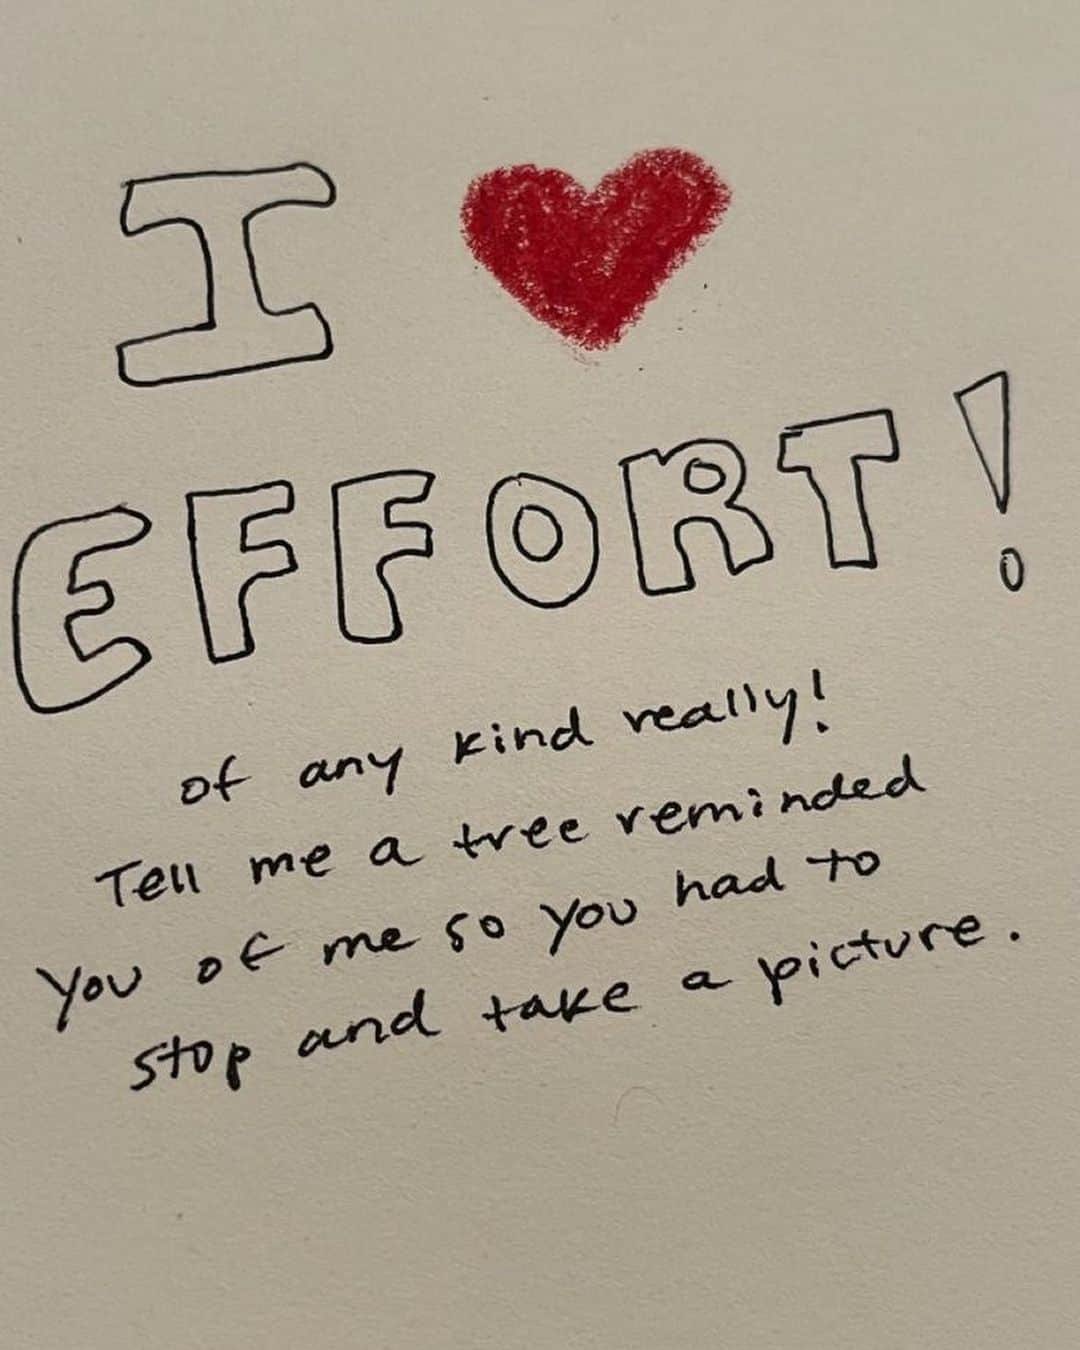 I ❤
EFFORT!
of any kind really!
Tell me a tree reminded
you of me so you had to
stop and take a picture.